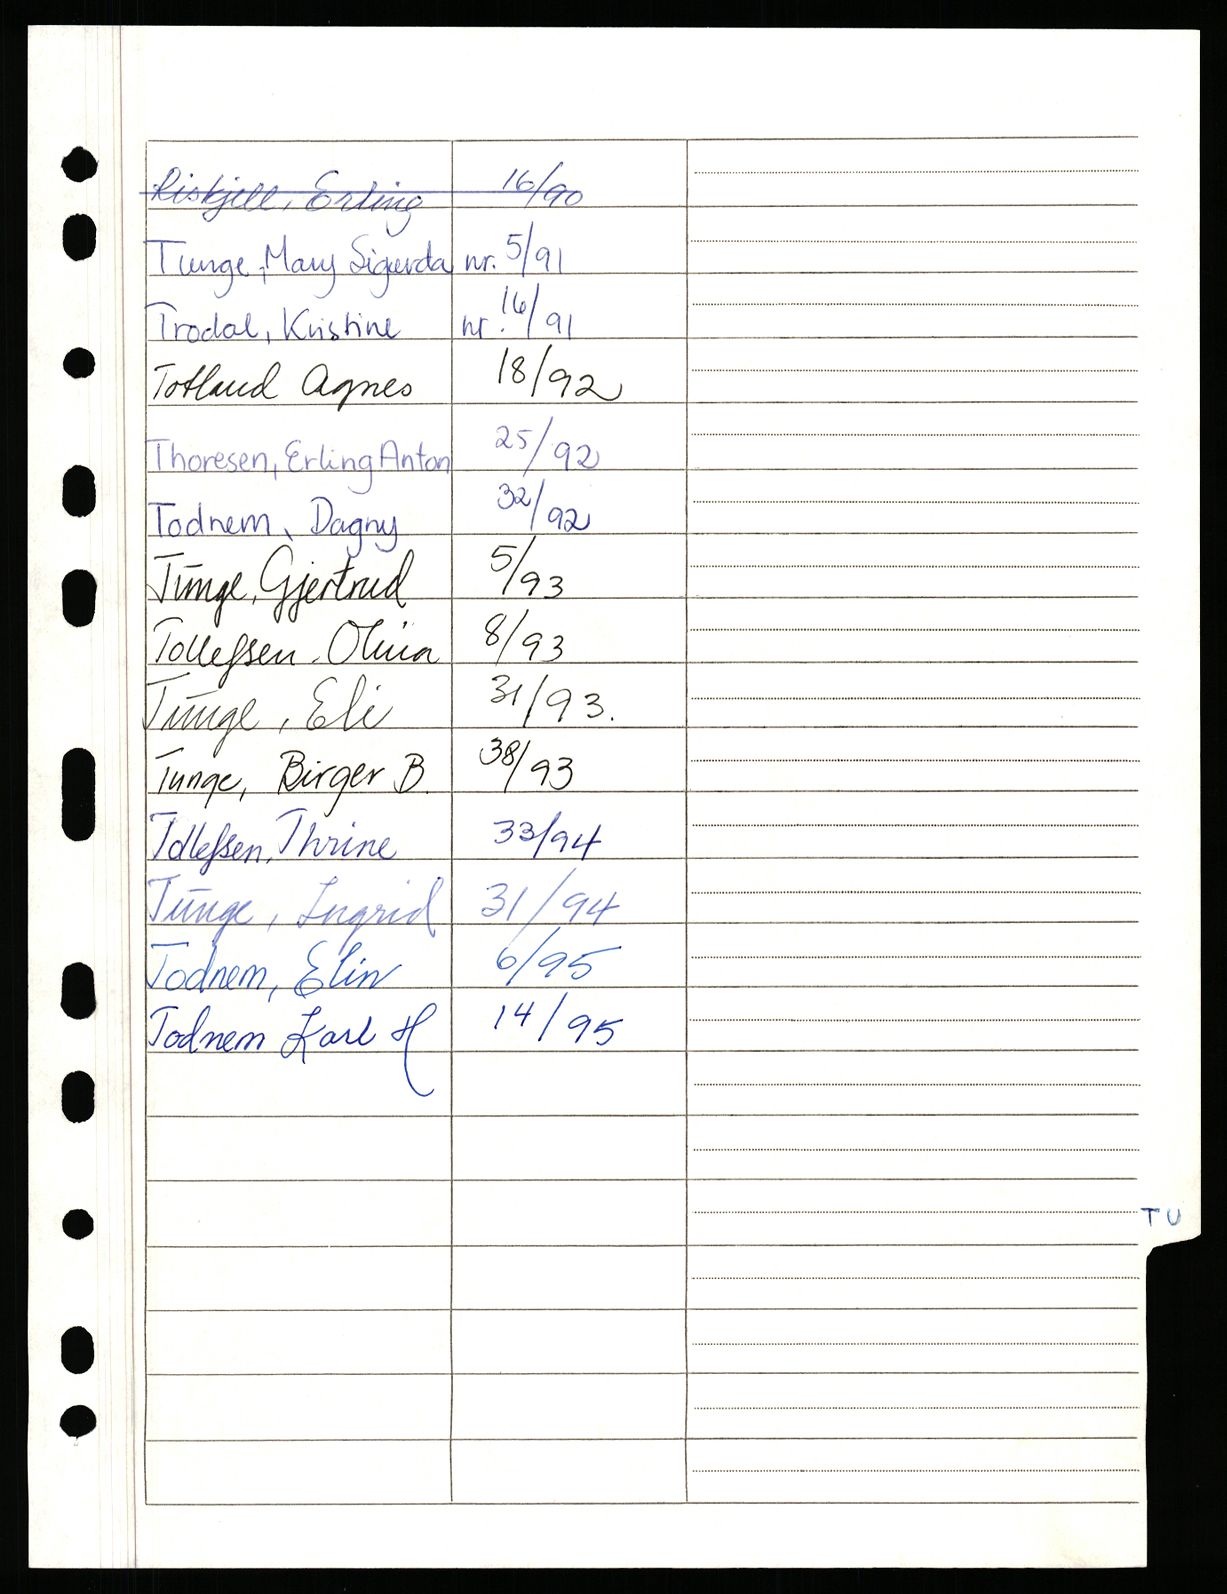 Riskjell, Erling 16/90
Tunge, Mary Sigurda nr. 5/91
Trodal, Kristine nr. 16/91
Totland Agnes 18/92
Thoresen, Erling Anton 25/92
Todnem, Dagny 32/92
Tunge, Gjertrud 5/93
Tollefsen, Olivia 8/93
Tunge, Eli 31/93.
Tunge, Birger B. 38/93
Tollefsen, Thrine 33/94
Tunge, Ingrid 31/94
Todnem, Elin 6/95
Todnem Karl H 14/95
TU